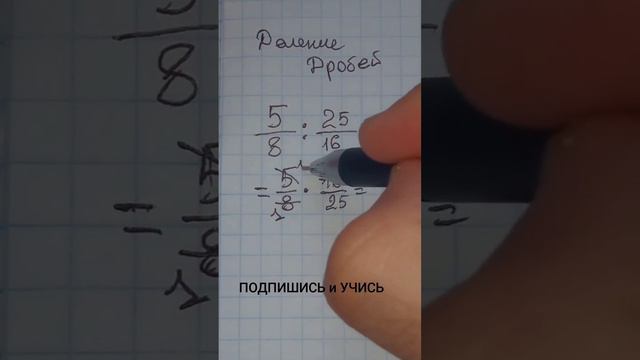 Деление
Дробей
5/8 : 25/16
= 5/8 · 16/25 =
ПОДПИШИСЬ и УЧИСЬ